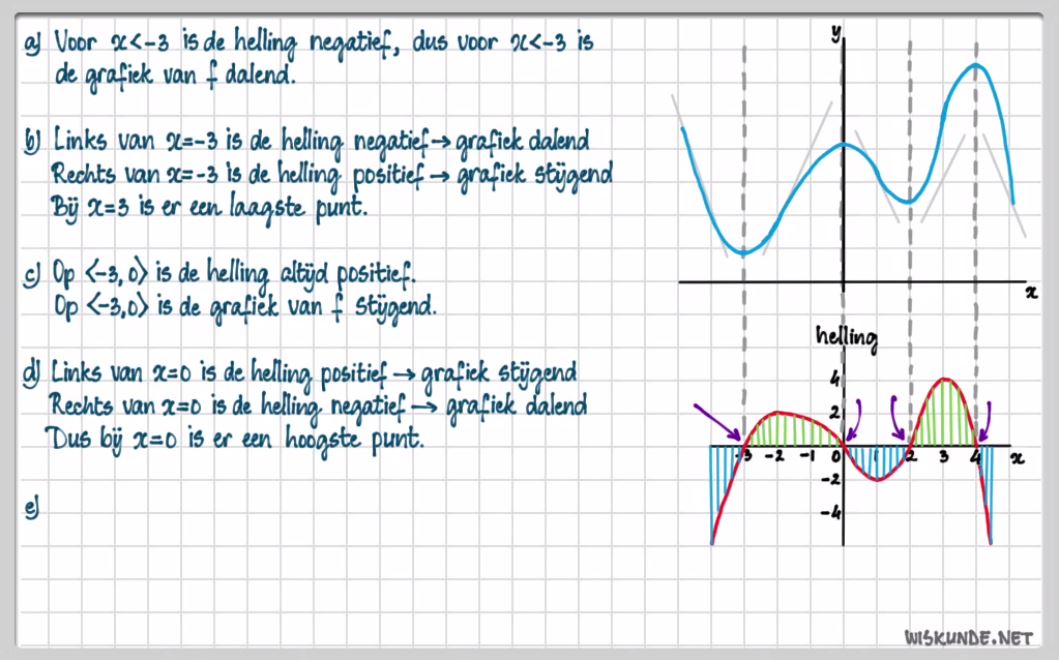 a) Voor x<-3 is de helling negatief, dus voor x<-3 is
de grafiek van f dalend.
b) Links van x=-3 is de helling negatief→grafiek dalend
Rechts van x=-3 is de helling positief → grafiek stijgend
Bij x=3 is er een laagste punt.
c) Op ⟨-3, 0⟩ is de helling altijd positief.
Op ⟨-3,0⟩ is de grafiek van f stijgend.
d) Links van x=0 is de helling positief → grafiek stijgend
Rechts van x=0 is de helling negatief → grafiek dalend
Dus bij x=0 is er een hoogste punt.
e)
y
x
helling
4
2
-3 -2 -1 0 1 2 3 4 x
-2
-4
WISKUNDE.NET